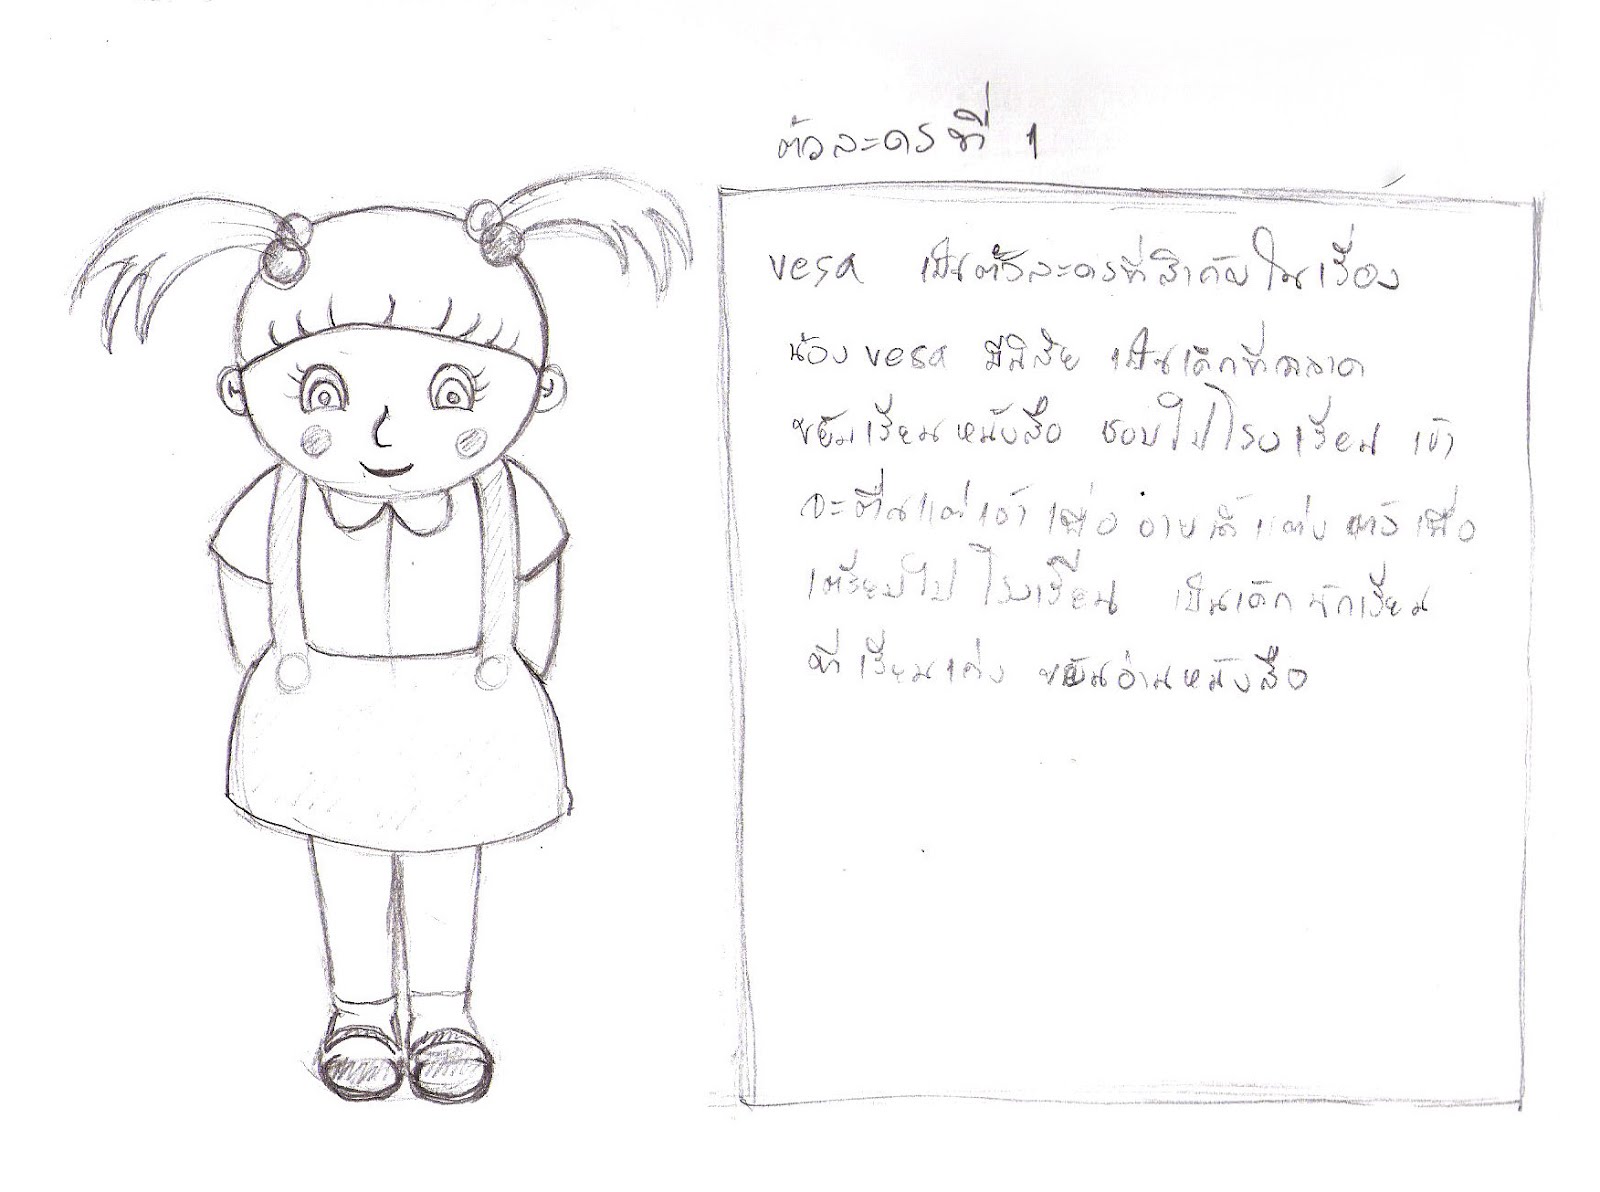 ตัวละครที่ 1
vesa เป็นตัวละครที่สำคัญในเรื่อง
น้อง vesa มีนิสัย เป็นเด็กที่ฉลาด
ขยันเรียนหนังสือ ชอบไปโรงเรียน เช้า
จะตื่นแต่เช้า เพื่อ อาบน้ำแต่ง ตัวเพื่อ
เตรียมไป โรงเรียน เป็นเด็ก นักเรียน
ที่เรียนเก่ง ขยันอ่านหนังสือ